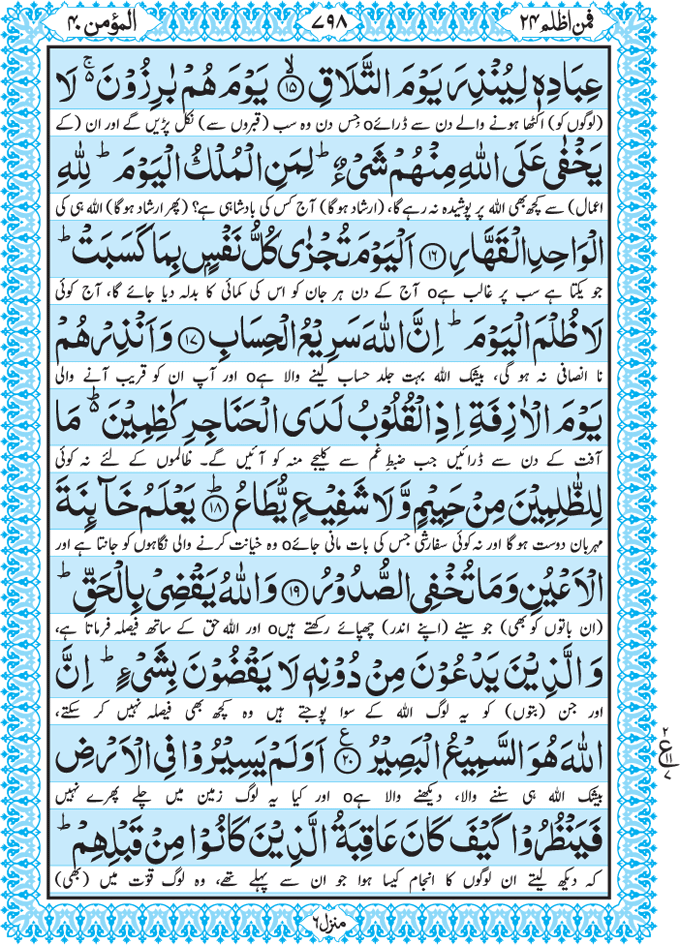 فمن اظلم ۲۴
۷۹۸
المؤمن ۴۰
عِبَادِهٖ لِيُنْذِرَ يَوْمَ التَّلَاقِ ۙ﴿۱۵﴾ يَوْمَ هُمْ بٰرِزُوْنَ ۚ۬ لَا
(لوگوں کو) اکٹھا ہونے والے دن سے ڈرائےo جس دن وہ سب (قبروں سے) نکل پڑیں گے اور ان (کے
يَخْفٰى عَلَى اللّٰهِ مِنْهُمْ شَيْءٌ ؕ لِمَنِ الْمُلْكُ الْيَوْمَ ؕ لِلّٰهِ
اعمال) سے کچھ بھی اللہ پر پوشیدہ نہ رہے گا، (ارشاد ہوگا) آج کس کی بادشاہی ہے؟ (پھر ارشاد ہوگا) اللہ ہی کی
الْوَاحِدِ الْقَهَّارِ ﴿۱۶﴾ اَلْيَوْمَ تُجْزٰى كُلُّ نَفْسٍۭ بِمَا كَسَبَتْ ؕ
جو یکتا ہے سب پر غالب ہےo آج کے دن ہر جان کو اس کی کمائی کا بدلہ دیا جائے گا، آج کوئی
لَا ظُلْمَ الْيَوْمَ ؕ اِنَّ اللّٰهَ سَرِيْعُ الْحِسَابِ ﴿۱۷﴾ وَاَنْذِرْهُمْ
نا انصافی نہ ہو گی، بیشک اللہ بہت جلد حساب لینے والا ہےo اور آپ ان کو قریب آنے والی
يَوْمَ الْاٰزِفَةِ اِذِ الْقُلُوْبُ لَدَى الْحَنَاجِرِ كٰظِمِيْنَ ؕ۬ مَا
آفت کے دن سے ڈرائیں جب ضبطِ غم سے کلیجے منہ کو آئیں گے۔ ظالموں کے لئے نہ کوئی
لِلظّٰلِمِيْنَ مِنْ حَمِيْمٍ وَّلَا شَفِيْعٍ يُّطَاعُ ؕ﴿۱۸﴾ يَعْلَمُ خَآئِنَةَ
مہربان دوست ہو گا اور نہ کوئی سفارشی جس کی بات مانی جائےo وہ خیانت کرنے والی نگاہوں کو جانتا ہے اور
الْاَعْيُنِ وَمَا تُخْفِي الصُّدُوْرُ ﴿۱۹﴾ وَاللّٰهُ يَقْضِيْ بِالْحَقِّ ؕ
(ان باتوں کو بھی) جو سینے (اپنے اندر) چھپائے رکھتے ہیںo اور اللہ حق کے ساتھ فیصلہ فرماتا ہے،
وَالَّذِيْنَ يَدْعُوْنَ مِنْ دُوْنِهٖ لَا يَقْضُوْنَ بِشَيْءٍ ؕ اِنَّ
اور جن (بتوں) کو یہ لوگ اللہ کے سوا پوجتے ہیں وہ کچھ بھی فیصلہ نہیں کر سکتے،
اللّٰهَ هُوَ السَّمِيْعُ الْبَصِيْرُ ﴿۲۰﴾ع اَوَلَمْ يَسِيْرُوْا فِي الْاَرْضِ
۲ ع ۱۱ ۷
بیشک اللہ ہی سننے والا، دیکھنے والا ہےo اور کیا یہ لوگ زمین میں چلے پھرے نہیں
فَيَنْظُرُوْا كَيْفَ كَانَ عَاقِبَةُ الَّذِيْنَ كَانُوْا مِنْ قَبْلِهِمْ ؕ
کہ دیکھ لیتے ان لوگوں کا انجام کیسا ہوا جو ان سے پہلے تھے، وہ لوگ قوّت میں (بھی)
منزل ۶